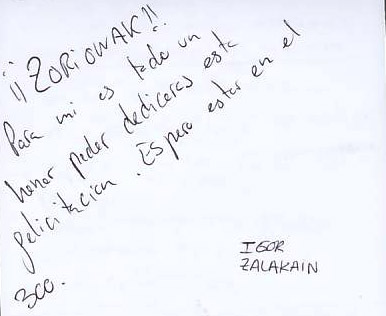 ¡¡ZORIONAK!!
Para mi es todo un
honor poder dedicaros esta
felicitacion. Espero estar en el
300.
IGOR
ZALAKAIN